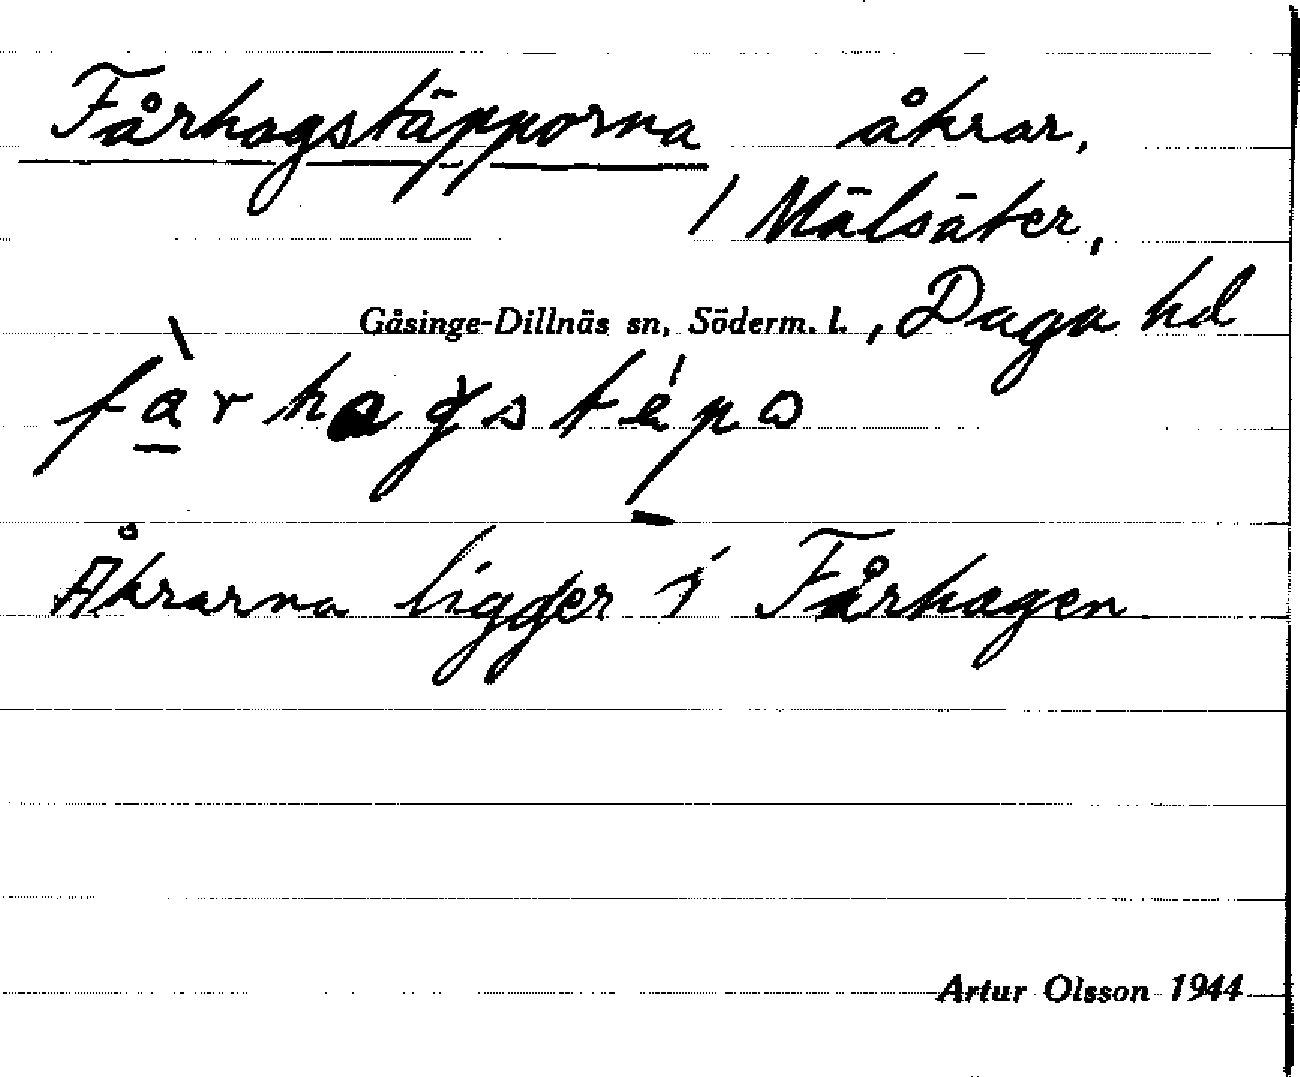 Fårhagstäpporna åkrar,
/ Mälsäter,
Gåsinge-Dillnäs sn, Söderm. l. , Daga hd
Åkrarna ligger i Fårhagen
Artur Olsson 1944